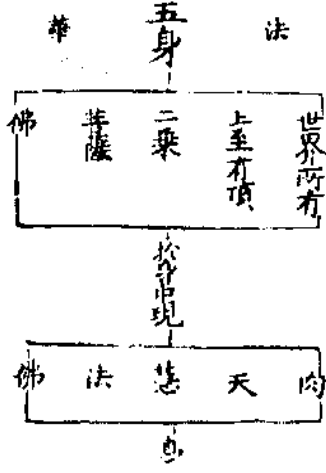 法 華
五身
世界所有
上至有頂
二乘
菩薩
佛
於身中現
肉
天
慧
法
佛